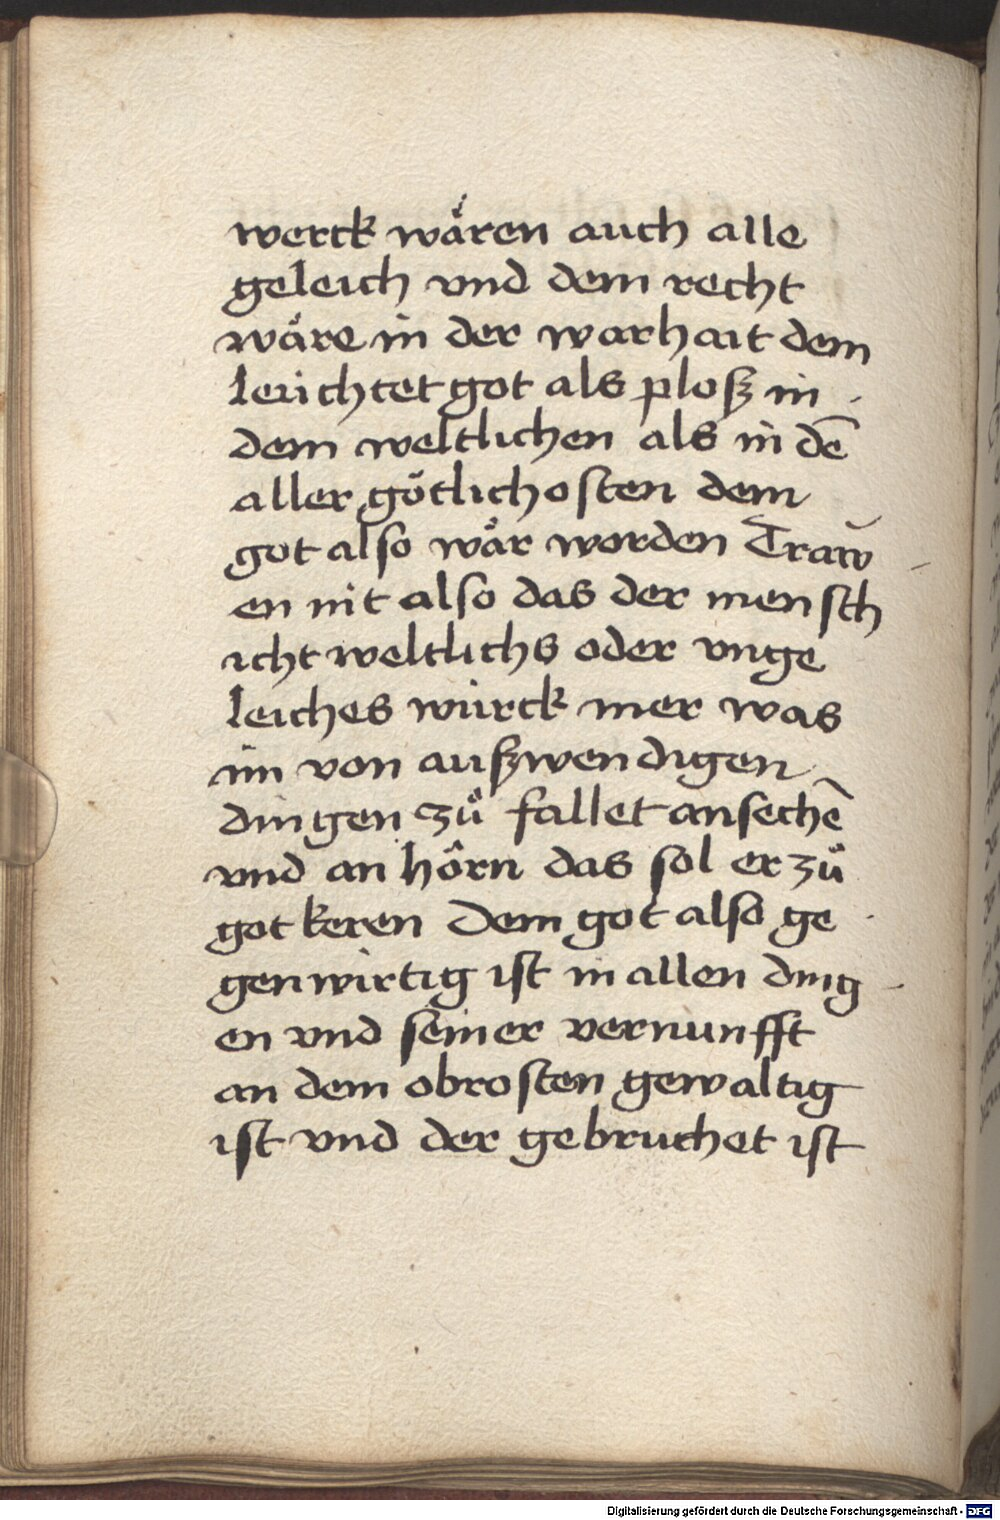 werck wåren auch alle
geleich vnd dem recht
wåre in der warhait dem
leüchtet got als ploß in
dem weltlichen als in dē
aller götlichosten dem
got also wår worden Traw̄
en nit also das der mensch
icht weltlichs oder vnge
leiches würck mer was
im von außwendigen
dingen zů fallet ansechē
vnd an hôrn das sol er zů
got keren Dem got also ge
genwirtig ist in allen ding
en vnd seiner vernunfft
an dem obrosten gewaltig
ist vnd der gebruchet ist
Digitalisierung gefördert durch die Deutsche Forschungsgemeinschaft - DFG